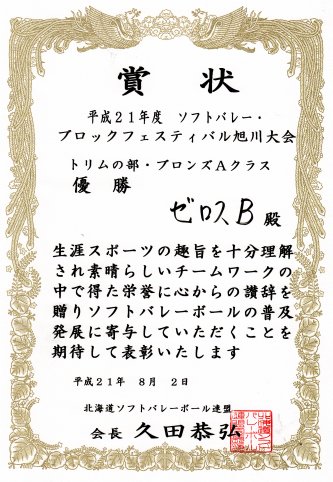 賞状
平成21年度 ソフトバレー・
ブロックフェスティバル旭川大会
トリムの部・ブロンズAクラス
優勝
ゼロスB 殿
生涯スポーツの趣旨を十分理解
され素晴らしいチームワークの
中で得た栄誉に心からの讃辞を
贈りソフトバレーボールの普及
発展に寄与していただくことを
期待して表彰いたします
平成21年 8月 2日
北海道ソフトバレーボール連盟
会長 久田恭弘